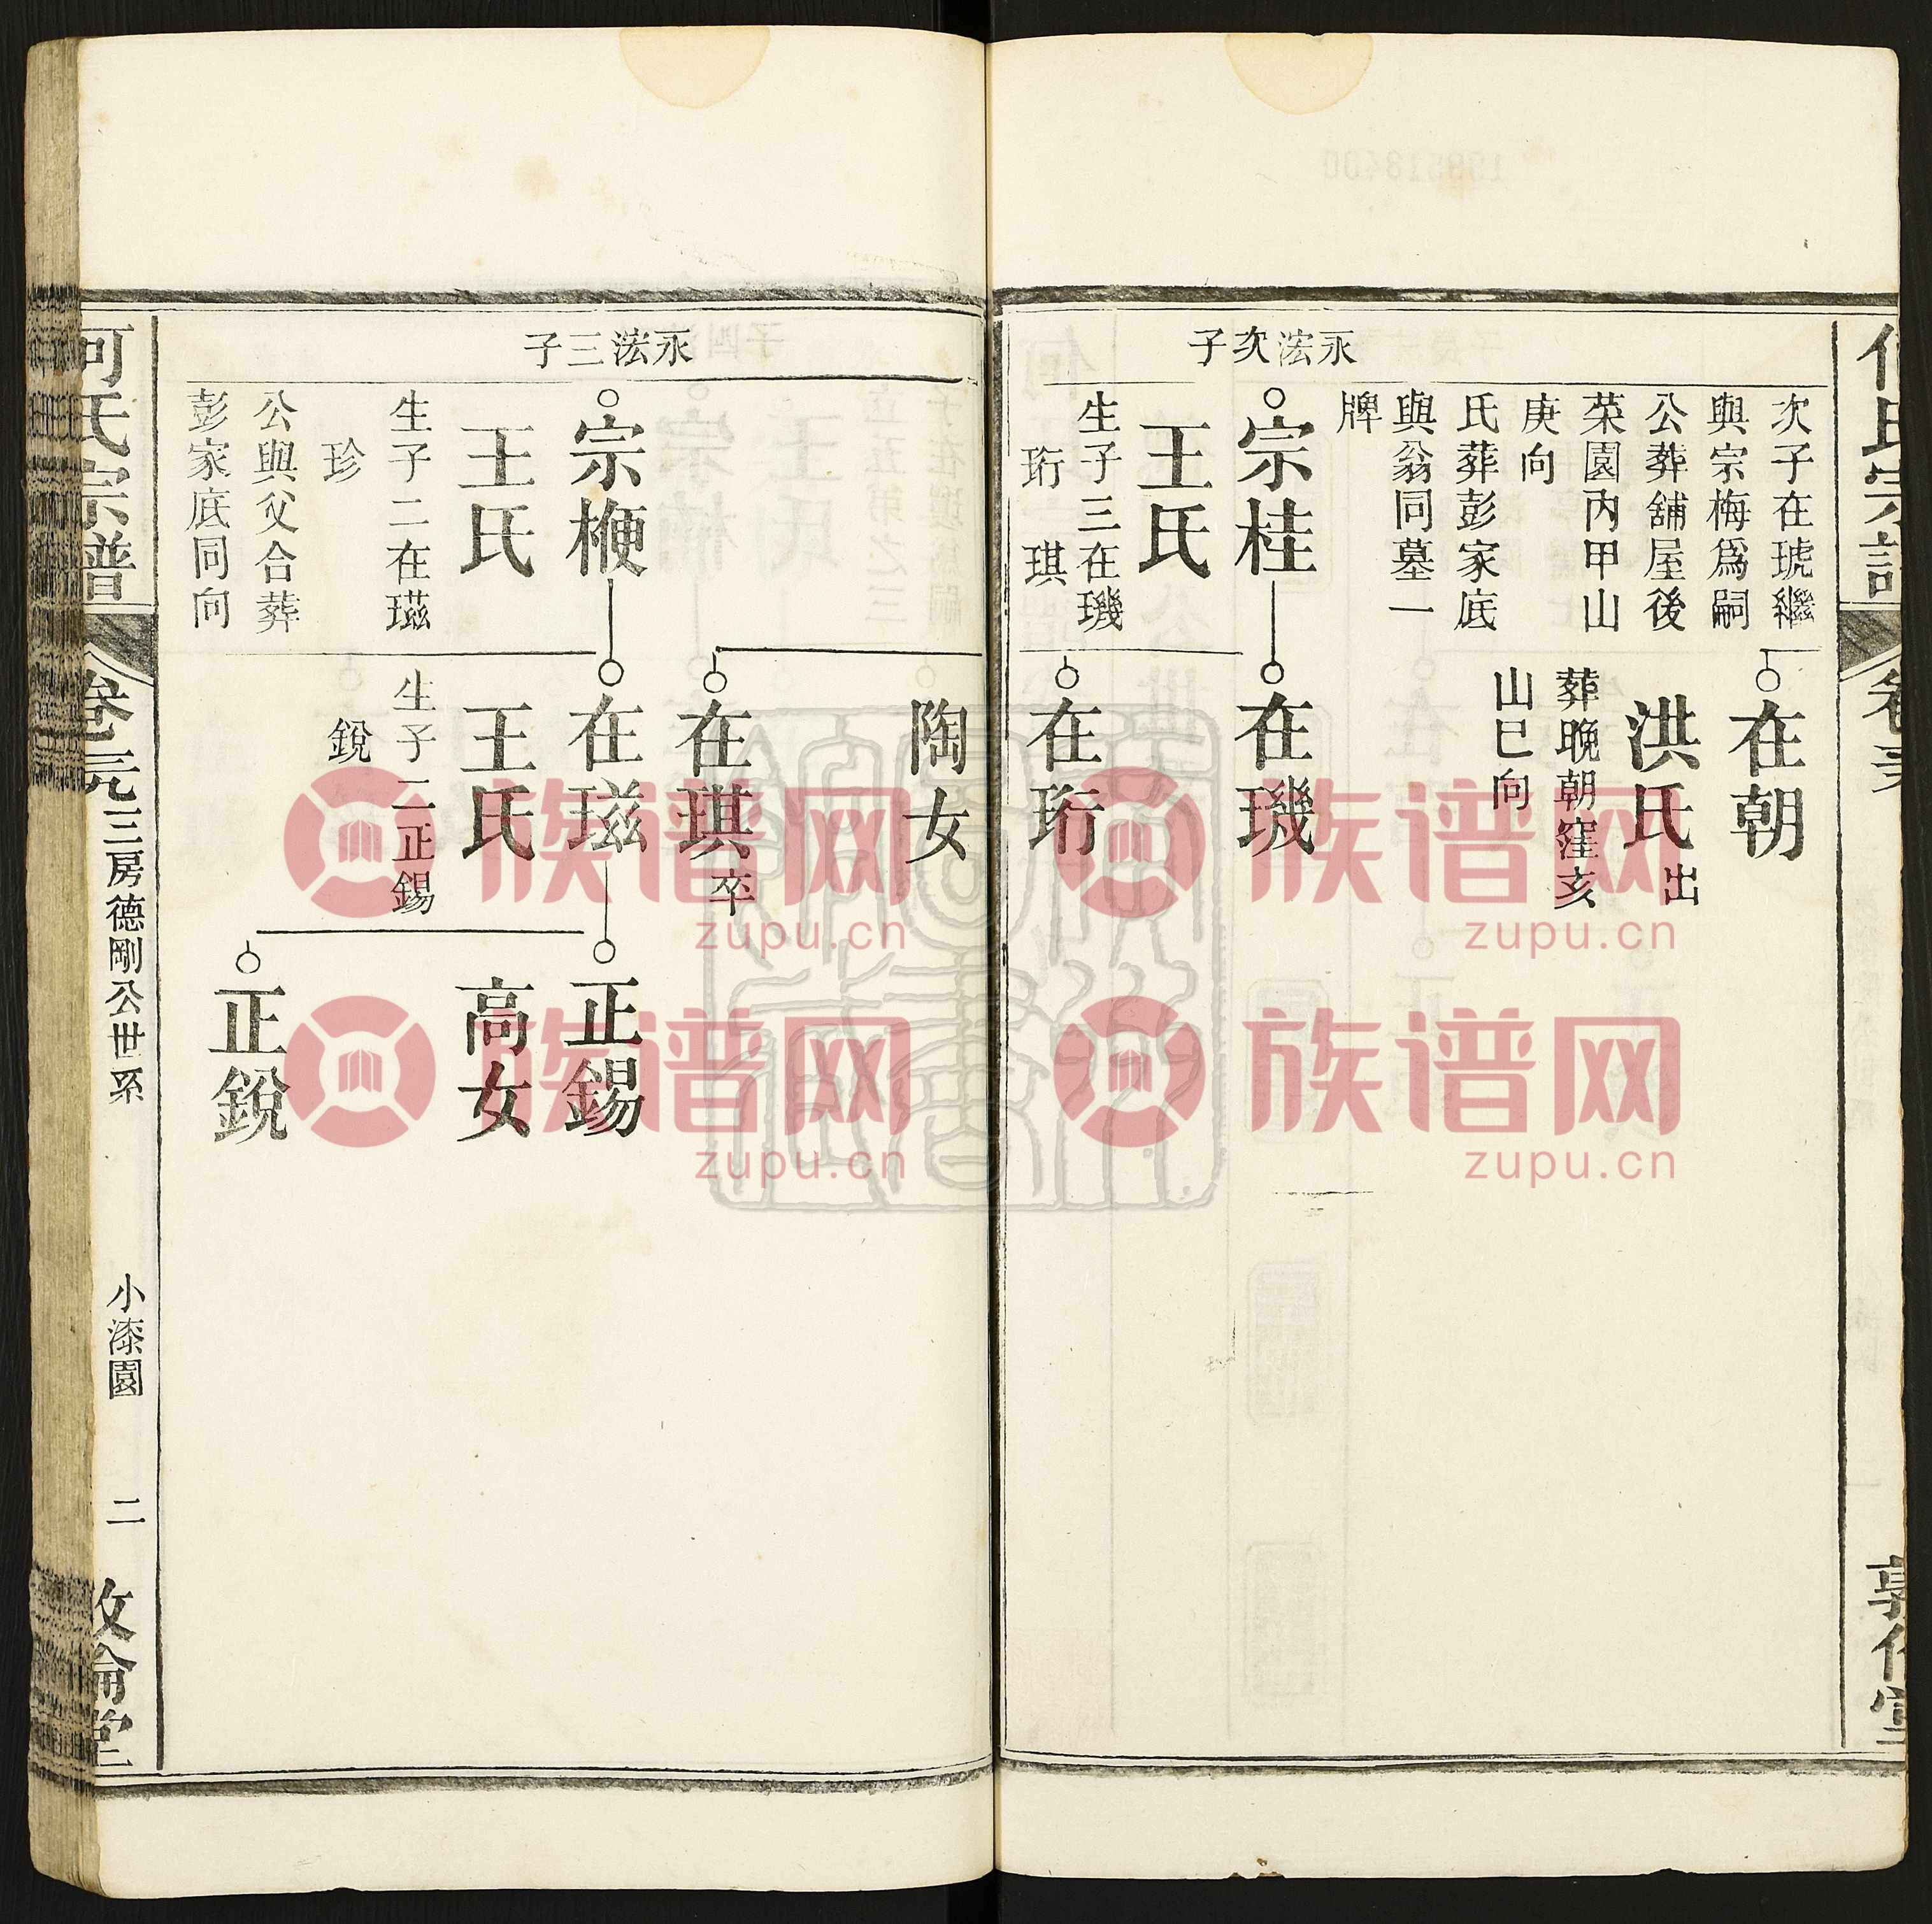 永浤次子
次子在琥繼
與宗梅爲嗣
公葬舖屋後
菜園內甲山
庚向
氏葬彭家底
與翁同墓一
牌
宗桂
王氏
生子三在璣
珩 琪
在朝
洪氏出
葬晚朝窪亥
山巳向
在璣
在珩
永浤三子
宗楩
王氏
生子二在璣
珍
公與父合葬
彭家底同向
陶女
在琪卒
在璣
王氏
生子二正錫
銳
正錫
高女
正銳
何氏宗譜
三房德剛公世系
小漆園
二
敦倫堂
族谱网
zupu.cn
族谱网
zupu.cn
族谱网
zupu.cn
族谱网
zupu.cn